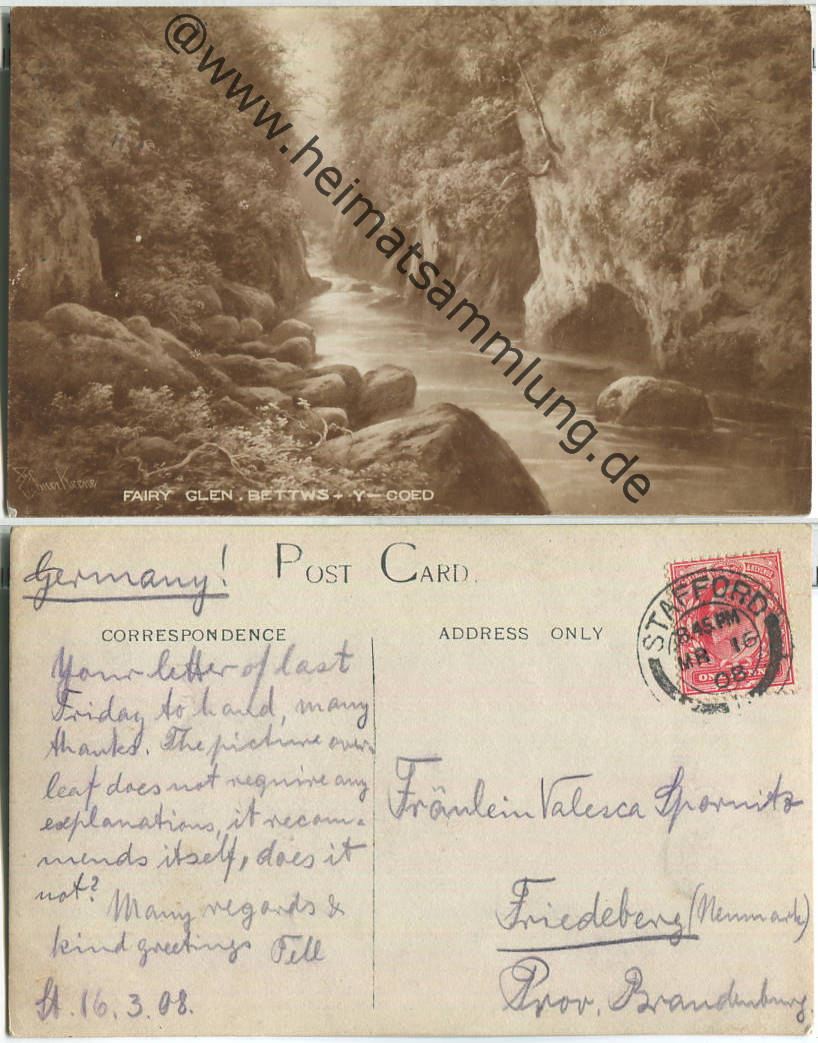 @www.heimatsammlung.de
Elmer Keene
FAIRY GLEN. BETTWS-Y-COED
Germany!
POST CARD.
CORRESPONDENCE
ADDRESS ONLY
STAFFORD
8.45 PM
MR 16
08
Your letter of last
Friday to hand, many
thanks. The picture over-
leaf does not require any
explanations, it recom-
mends itself, does it
not?
Many regards &
kind greetings Fell
St. 16.3.08.
Fräulein Valesca Spornitz
Friedeberg (Neumark)
Prov. Brandenburg